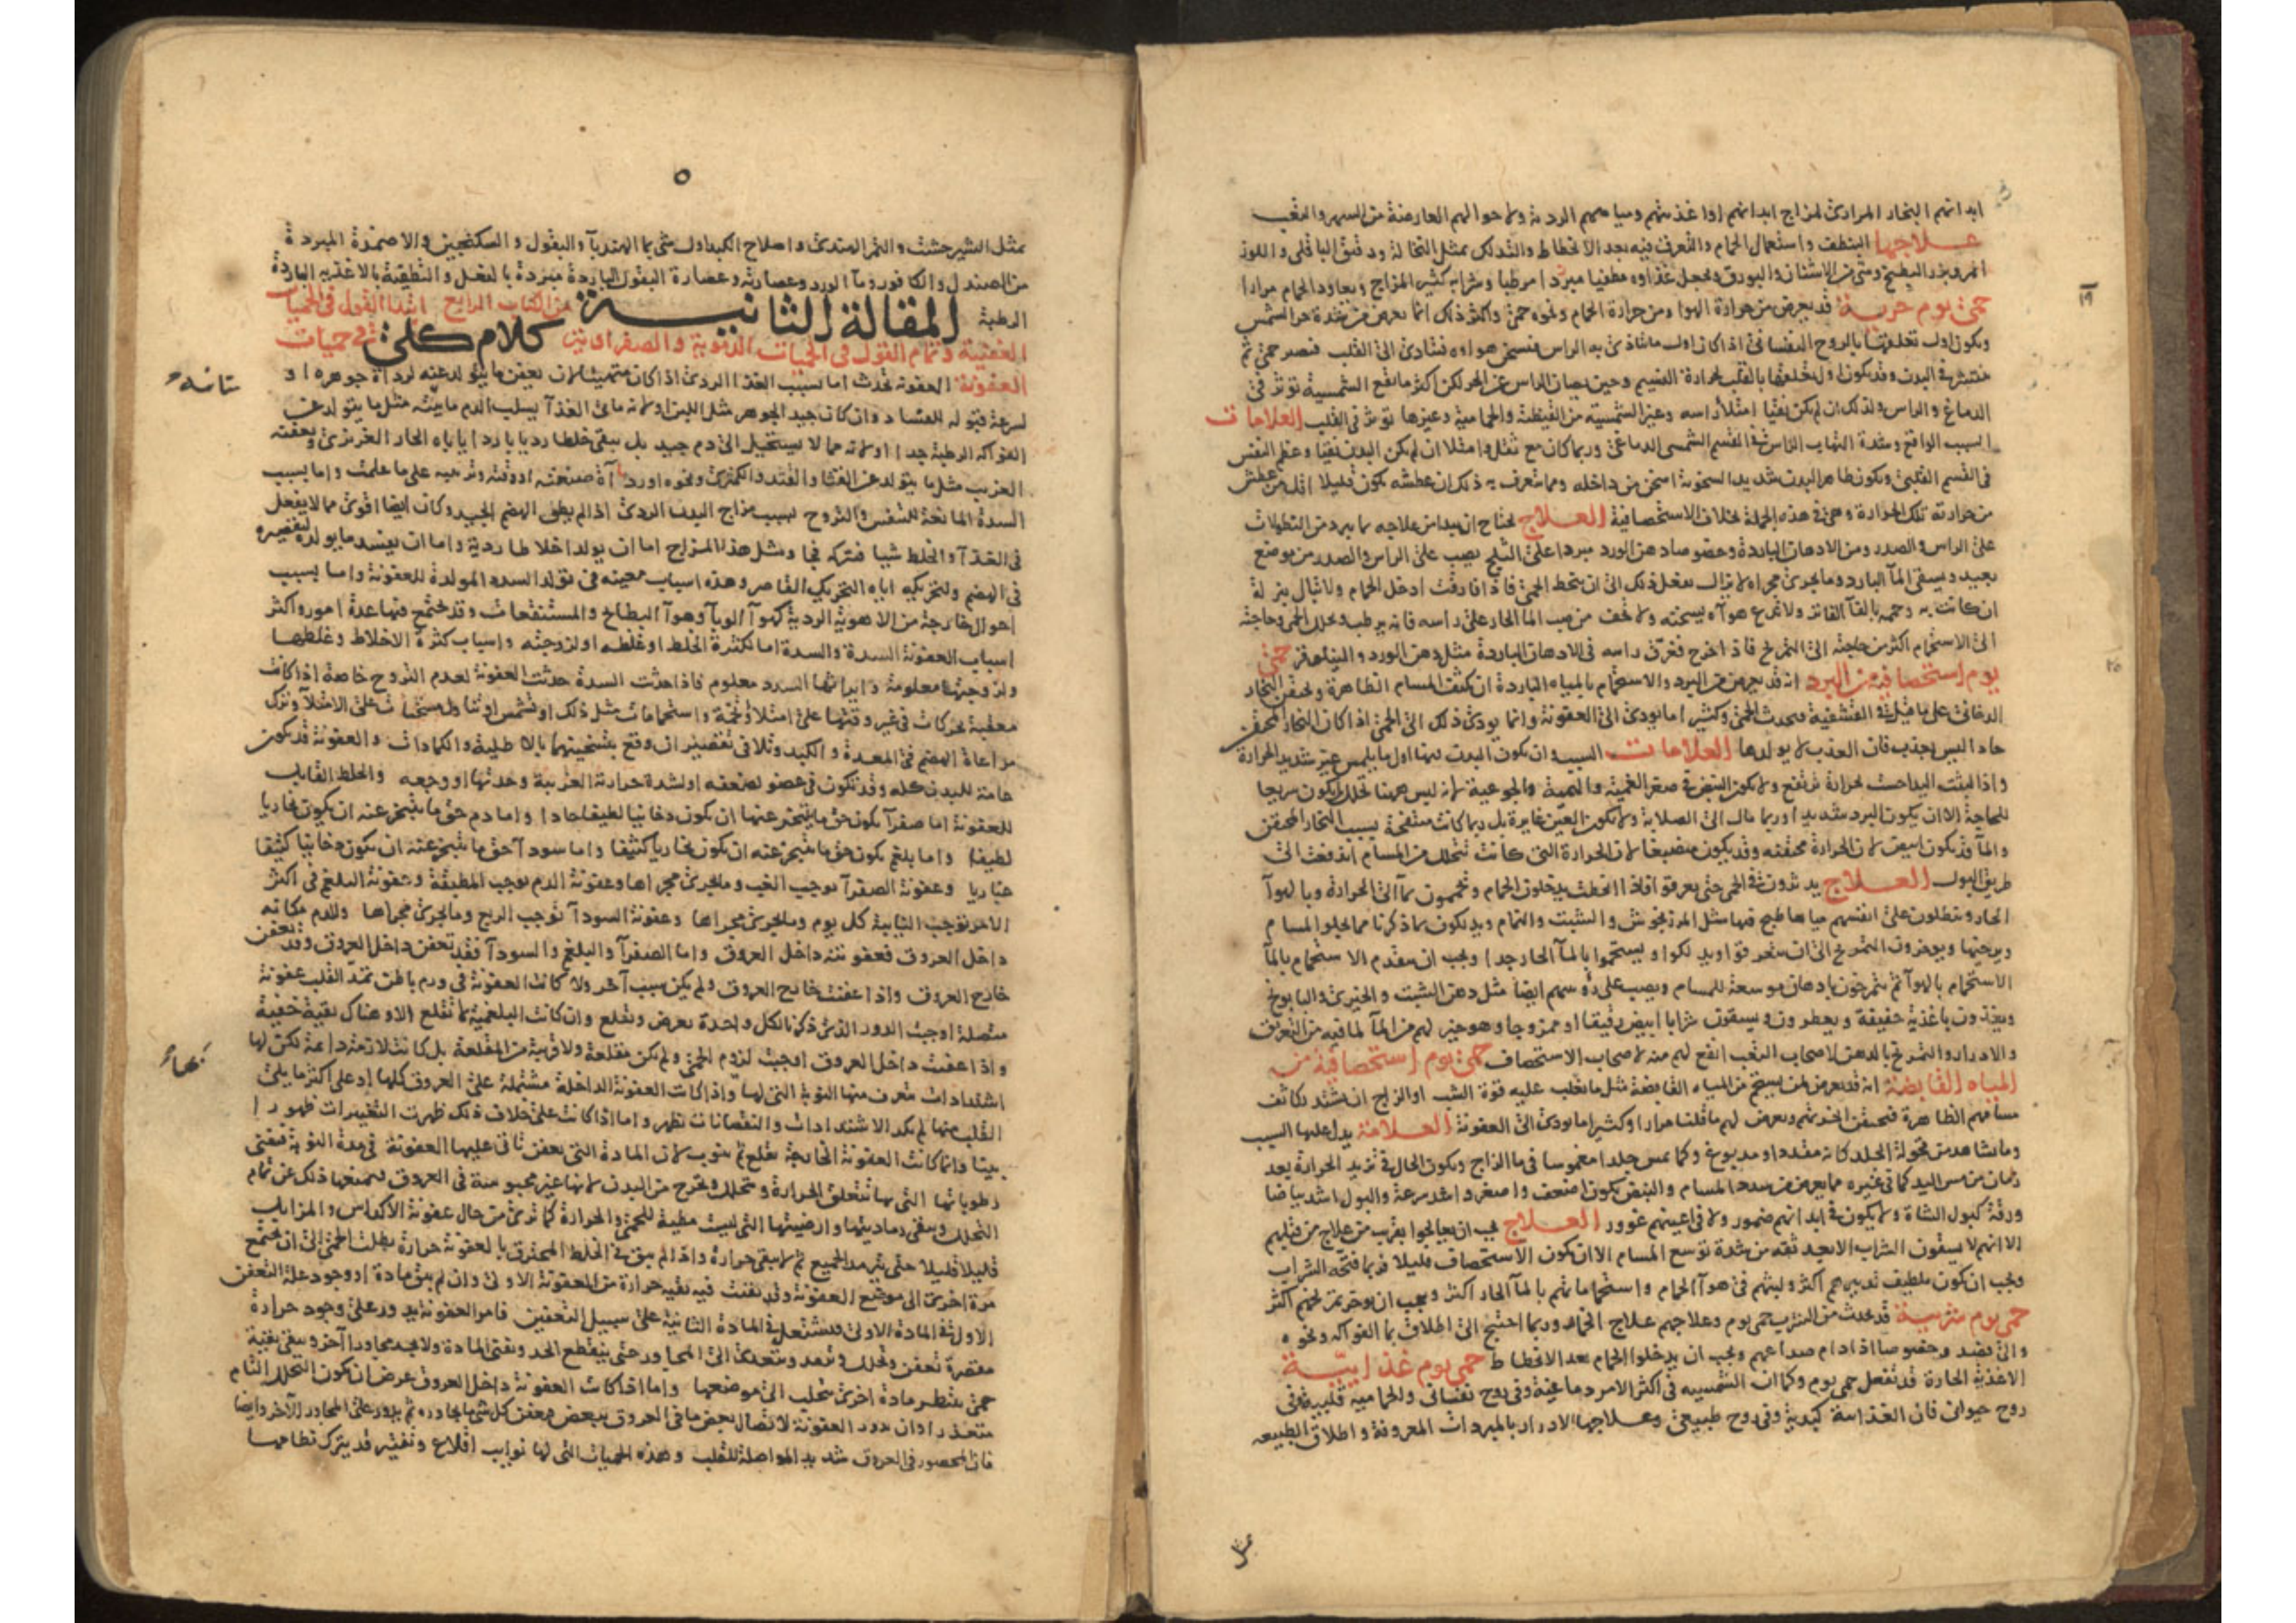 ابدانهم البخار المرارى لمزاج ابدانهم اوا غذيتهم ومياههم الردية ولاحوالهم العارضة من السهر والتعب
علاجها التنطف واستعمال الحمام والتعرق فيه بعد الانحطاط والتدلك بمثل النخالة ودقيق الباقلى واللوز
المر وبزر البطيخ وشى من الاشنان والبورق ويجعل غذاوه مطفيا مبردا مرطبا وشرابه كثير المزاج ويعاود الحمام مرارا
حمى يوم حرية قد يعرض من حرارة الهوا ومن حرارة الحمام ونحوه حمى واكثر ذلك انما يعرض من شدة حر الشمس
ويكون اول تعلقها بالروح النفسانى اذا كان اول ما يتاذى به الراس فيسخن هواوه فيتادى الى القلب فيصير حمى ثم
ينتشر فى البدن وقد يكون اول تعلقها بالقلب لحرارة النسيم وحين يصان الراس عن الحر لكن اكثر ما تقع الشمسية تؤثر فى
الدماغ والراس ولذلك ان لم يكن نقيا امتلأ راسه وغير الشمسية من القيظية والحمامية وغيرها تؤثر فى القلب العلامات
السبب الواقع وشدة التهاب الراس فى القسم الشمسى الدماغى وربما كان مع ثقل وامتلا ان لم يكن البدن نقيا وعظم النفس
فى القسم القلبى ويكون ظاهر البدن شديد السخونة اسخن من داخله ومما يتعرف به ذلك ان عطشه يكون قليلا اقل من عطش
من حرارته تلك الحرارة وهى فى هذه الجملة بخلاف الاستحصافية العلاج يحتاج ان يبدا من علاجه بما يبرد من النطولات
على الراس والصدر ومن الادهان الباردة وخصوصا دهن الورد مبردا على الثلج يصب على الراس والصدر من موضع
بعيد ويسقى المآ البارد وما يجرى مجراه لا يزال يفعل ذلك الى ان تنحط الحمى فاذا فارقت ادخل الحمام ولا تبال بنزلة
ان كانت به وحممه بالمآ الفاتر ولا تدع هواه يسخنه ولا تخف من صب المآ الحار على راسه فانه يرطب ويحلل الحمى وحاجته
الى الاستحمام اكثر من حاجته الى التمريخ فاذا خرج فغرق راسه فى الادهان الباردة مثل دهن الورد والنيلوفر حمى
يوم استحصافية من البرد انه قد يعرض من البرد والاستحمام بالمياه الباردة ان تكثف المسام الظاهرة ويحتقن البخار
الدخانى على ما قيل فى القشفية فيحدث الحمى وكثيرا ما يودى الى العفونة وانما يودى ذلك الى الحمى اذا كان البخار المحتقن
حادا ليس بعذب فان العذب لا يولدها العلامات السبب وان يكون البدن فيها اول ما يلمس غير شديد الحرارة
واذا لبثت اليد احست بحرارة ترتفع ولا يكون النبض فى صغر الغمية والهمية والجوعية لانه ليس ههنا تحلل ويكون سريعا
للحاجة الا ان يكون البرد شديدا وربما مال الى الصلابة ولا يكون العين غايرة بل ربما كانت منتفخة بسبب البخار المحتقن
والمآ قد يكون ابيض لان الحرارة محتقنه وقد يكون منصبغا لان الحرارة التى كانت تتحلل من المسام اندفعت الى
طريق البول العلاج يدثرون فى الحمى حتى يعرقوا فاذا انحطت يدخلون الحمام ويحممون بمآ الى الحرارة وبالهوآ
الحار وينطلون على انفسهم مياها طبخ فيها مثل المرزنجوش والشبت والنمام ويدلكون بما ذكرنا مما يجلوا المسام
ويرخيها ويوخرون التمريخ الى ان يتعرقوا ويدلكوا ويستحموا بالمآ الحار جدا ويجب ان يقدم الاستحمام بالمآ
الاستحمام بالهوآ ثم يتمرخون بادهان موسعة للمسام ويصب على روسهم ايضا مثل دهن الشبت والخيرى والبابونج
ويغذون باغذية خفيفة ويعطرون ويسقون شرابا ابيض رقيقا او ممزوجا وهو خير لهم من المآ لما فيه من التعريق
والادرار والتمريخ بالدهن لاصحاب التعب انفع لهم منه لاصحاب الاستحصاف حمى يوم استحصافية من
المياه القابضة انه قد يعرض لمن يستحم من المياه القابضة مثل ما يغلب عليه قوة الشب او الزاج ان يشتد تكاثف
مسامهم الظاهرة فيحتقن ابخرتهم ويعرض لهم ما قلنا مرارا وكثيرا ما يودى الى العفونة العلامة يدل عليها السبب
وما يشاهد من قحولة الجلد كانه مقدد او مدبوغ وكما يمس جلدا مغموسا فى ما الزاج ويكون الحال فى تزيد الحرارة بعد
زمان من مس اليد كما فى غيره مما يعرض من سد المسام والنبض يكون اضعف واصغر واشد سرعة والبول اشد بياضا
ورقة كبول الشاة ولا يكون فى ابدانهم ضمور ولا فى اعينهم غوور العلاج يجب ان يعالجوا بقريب من علاج من قبلهم
الا انهم لا يسقون الشراب الا بعد ثقه من شدة توسع المسام الا ان يكون الاستحصاف قليلا فربما فتحه الشراب
ويجب ان يكون تلطيف تدبيرهم اكثر ولبثهم فى هوآ الحمام واستحماماتهم بالمآ الحار اكثر ويجب ان يوخر تمريخهم اكثر
حمى يوم شربية قد يحدث من الشرب حمى يوم وعلاجهم علاج الخمار وربما احتيج الى اطلاق بما الفواكه ونحوه
والى فصد وخصوصا اذا دام صداعهم ويجب ان يدخلوا الحمام بعد الانحطاط حمى يوم غذايية
الاغذية الحارة قد تفعل حمى يوم وكما ان الشمسيه فى اكثر الامر دماغية وفى روح نفسانى والحماميه قلبية فى
روح حيوانى فان الغذائية كبدية وفى روح طبيعى وعلاجها الادرار بالمبردات المعروفة واطلاق الطبيعه
بمثل الشيرخشت والتمر الهندى واصلاح الكبد اول شى بما الهندبآ والبقول والسكنجبين والاضمدة المبردة
من الصندل والكافور ومآ الورد وعصارته وعصارة البقول الباردة مبردة بالفعل والتطفية بالاغذيه الباردة
الرطبة المقالة الثانية من الكتاب الرابع ابتدا القول فى الحميات
العفنية وتمام القول فى الحميات الدموية والصفراوية كلام كلى فى حميات
العفونة العفونة تحدث اما بسبب الغذا الردى اذا كان متهيئا لان يعفن ما يتولد عنه لرداة جوهره او
لسرعة قبوله للفساد وان كان جيد الجوهر مثل اللبن او لانه مائى الغذآ يسلب الدم ماييته مثل ما يتولد عن
الفواكه الرطبة جدا او لانه مما لا يستحيل الى دم جيد بل يبقى خلطا رديا باردا ياباه الحار الغريزى ويعفنه
الغريب مثل ما يتولد عن القثا والقثد والكمثرى ونحوه او ردآة صنعته او وقته وترتيبه على ما علمت واما بسبب
السدة المانعة للتنفس والتروح بسبب مزاج البدن الردى اذا لم يطق الهضم الجيد وكان ايضا اقوى مما لا يفعل
فى الغذآ والخلط شيا فتركه فجا ومثل هذا المزاج اما ان يولد اخلاطا ردية واما ان يفسد ما يولده لتقصيره
فى الهضم ولتحريكه اياه التحريك القاصر وهذه اسباب معينه فى تولد السدد المولدة للعفونة واما بسبب
احوال خارجة من الاهوية الردية كهوآ الوبآ وهوآ البطايح والمستنقعات وقد يجتمع منها عدة امور واكثر
اسباب العفونة السدة والسدة اما لكثرة الخلط او غلظه او لزوجته واسباب كثرة الاخلاط وغلظها
ولزوجتها معلومة وايراثها السدد معلوم فاذا حدثت السدة حدثت العفونة لعدم التروح خاصة اذا كانت
معقبة بحركات فى غير وقتها على امتلا وتخمة واستحمامات مثل ذلك او تشمس او تناول مسخنات على الامتلآ وترك
مراعاة الهضم فى المعدة والكبد وتلافى تقصير ان وقع بتسخينهما بالاطلية والكمادات والعفونة قد يكون
عامة للبدن كله وقد تكون فى عضو لضعفه او لشدة حرارته الغريبة وحدتها او وجعه والخلط القابل
للعفونة اما صفرآ يكون حق ما يتبخر عنها ان يكون دخانيا لطيفا حادا واما دم حق ما يتبخر عنه ان يكون بخاريا
لطيفا واما بلغم يكون حق ما يتبخر عنه ان يكون بخاريا كثيفا واما سودآ حق ما يتبخر عنه ان يكون دخانيا كثيفا
غباريا وعفونة الصفرآ يوجب الغب وما يجرى مجراها وعفونة الدم يوجب المطبقة وعفونة البلغم فى اكثر
الامر توجب النايبة كل يوم وما يجرى مجراها وعفونة السودآ توجب الربع وما يجرى مجراها والدم مكانه
داخل العروق فعفونته داخل العروق واما الصفرآ والبلغم والسودآ فقد تعفن داخل العروق وقد تعفن
خارج العروق واذا عفنت خارج العروق ولم يكن سبب آخر ولا كانت العفونة فى ورم باطن تمد القلب عفونة
متصلة اوجبت الدور الذى ذكرنا لكل واحدة يعرض ويقلع وان كانت البلغمية لا تقلع الا وهناك بقية خفية
واذا عفنت داخل العروق اوجبت لزوم الحمى ولم يكن مقلعة ولا قريبة من المقلعة بل كانت لازمة دايمة لكن لها
اشتدادات يتعرف منها النوبة التى لها واذا كانت العفونة الداخلة مشتملة على العروق كلها او على اكثر ما يلى
القلب منها لم يكد الاشتدادات والنقصانات تظهر واما اذا كانت على خلاف ذلك ظهرت التغيرات ظهورا
بينا وانما كانت العفونة الخارجة تقلع ثم تنوب لان المادة التى يعفن تاتى عليها العفونة فى مدة النوبة فيفنى
رطوباتها التى بها تتعلق الحرارة ويتحلل ويخرج من البدن لانها غير محبوسة فى العروق فيمنعها ذلك عن تمام
التحلل ويبقى رماديتها وارضيتها التى ليست مطية للحمى والحرارة كما ترى من حال عفونة الاكداس والمزابل
قليلا قليلا حتى يترمد الجميع ثم لا يبقى حرارة واذا لم يبق فى الخلط المحترق بالعفونة حرارة بطلت الحمى الى ان يجتمع
مرة اخرى الى موضع العفونة وقد بقيت فيه بقيه حرارة من العفونة الاولى وان لم يبق مادة او وجود علة التعفن
الاول فى المادة الاولى فيشتعل فى المادة الثانية على سبيل التعفين فامر العفونة يدور على وجود حرارة
مقصرة تعفن وتحلل وترمد ويتعدى الى المجاور حتى ينقطع الحد ويفنى المادة ولا يجد مجاورا آخر ويبقى بقية
حمى ينتظر مادة اخرى ينجلب الى موضعها واما اذا كانت العفونة داخل العروق عرض ان يكون التحلل التام
متعذرا وان يدور العفونة لاتصال بعض ما فى العروق ببعض فيعفن كل شى ما يجاوره ثم يدور على المجاور الآخر وايضا
فان المحصور فى العروق شديد المواصلة للقلب وهذه الحميات التى لها نوايب اقلاع وتفتير قد يترك نظامها